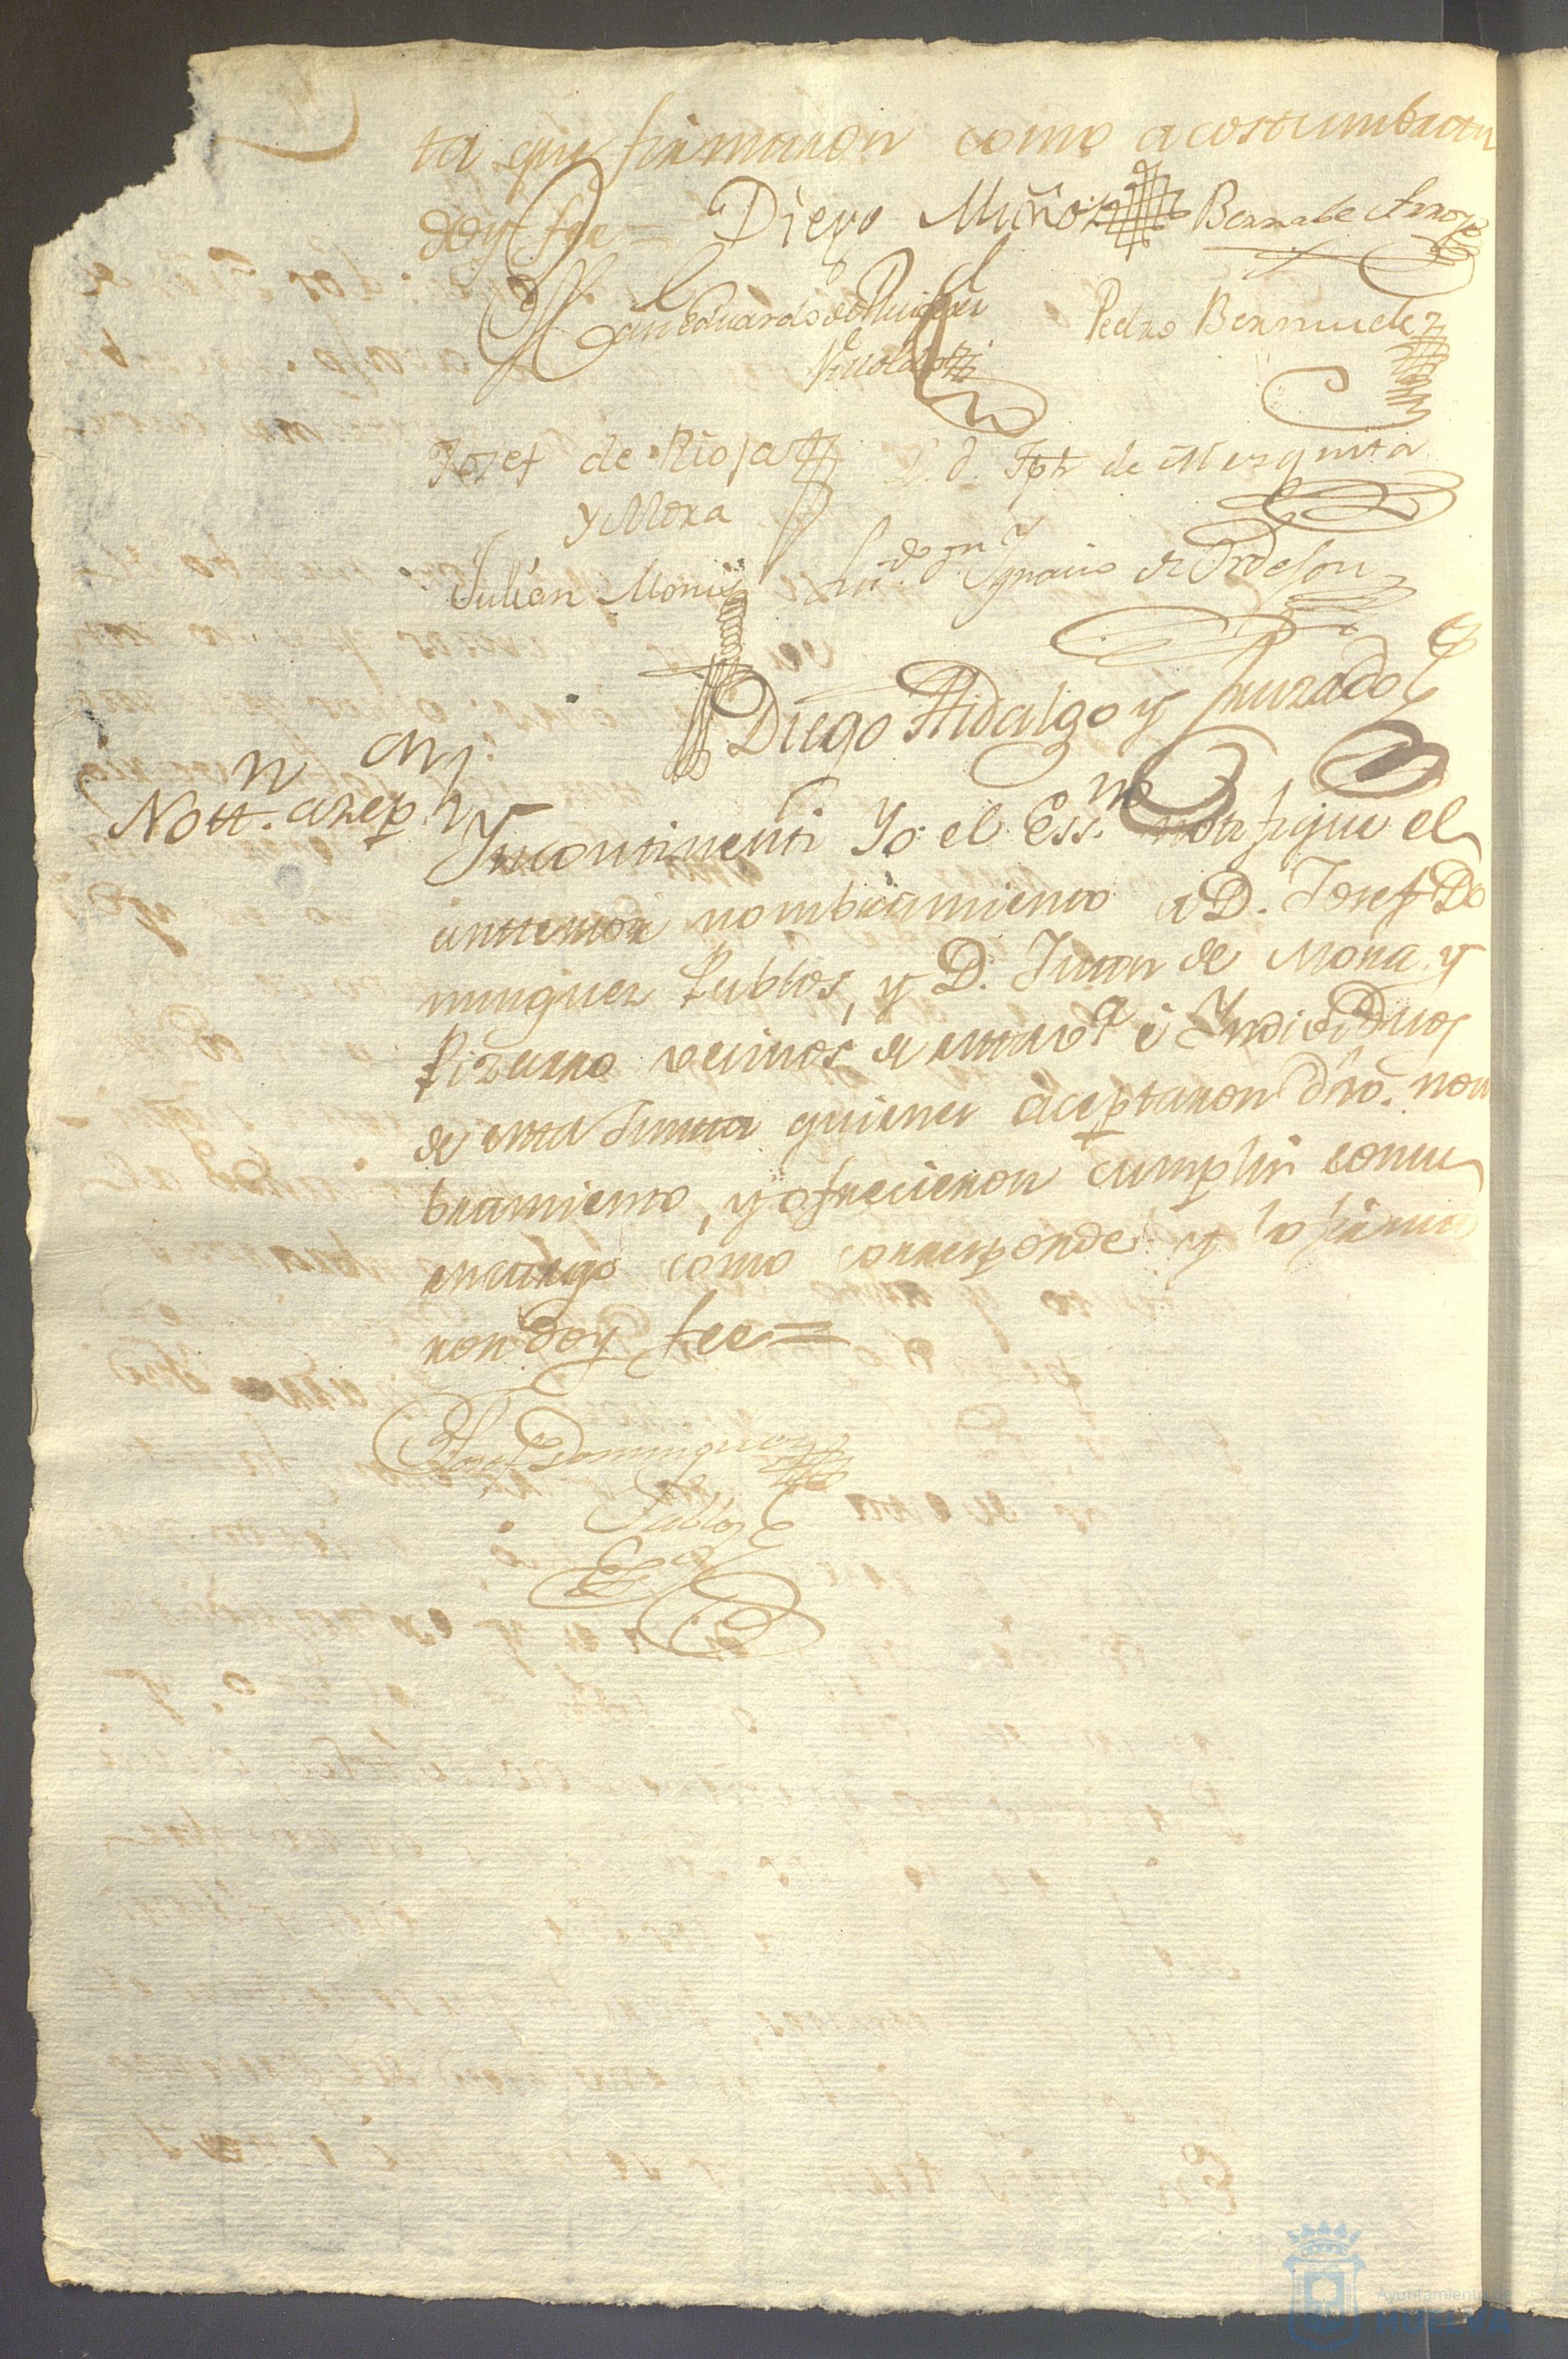 ta que firmaron como acostumbran
doy fee = Diego Muñoz Bernabe Arroyo
Juan Eduardo de
Pedro Bermudez
Josef de Rioja L. d. Jph de Mezquita
y Mora
Julián Monis Lizdo. dn. Ygnacio de Ordejon
Diego Hidalgo y Jurado
Nottn. azep on
Yncontinenti Yo el Essno notifique el
antterior nombramiento a D. Josef Do
minguez Pablos, y D. Juan de Mora y
Pizarro vecinos de estta va. é Yndividuos
de estta Junta quienes aceptaron dho. nom
bramiento, y ofrecieron cumplir con su
encargo como corresponde y lo firma
ron doy fee =
Josef Dominguez
Pablos
Ayuntamiento de
HUELVA